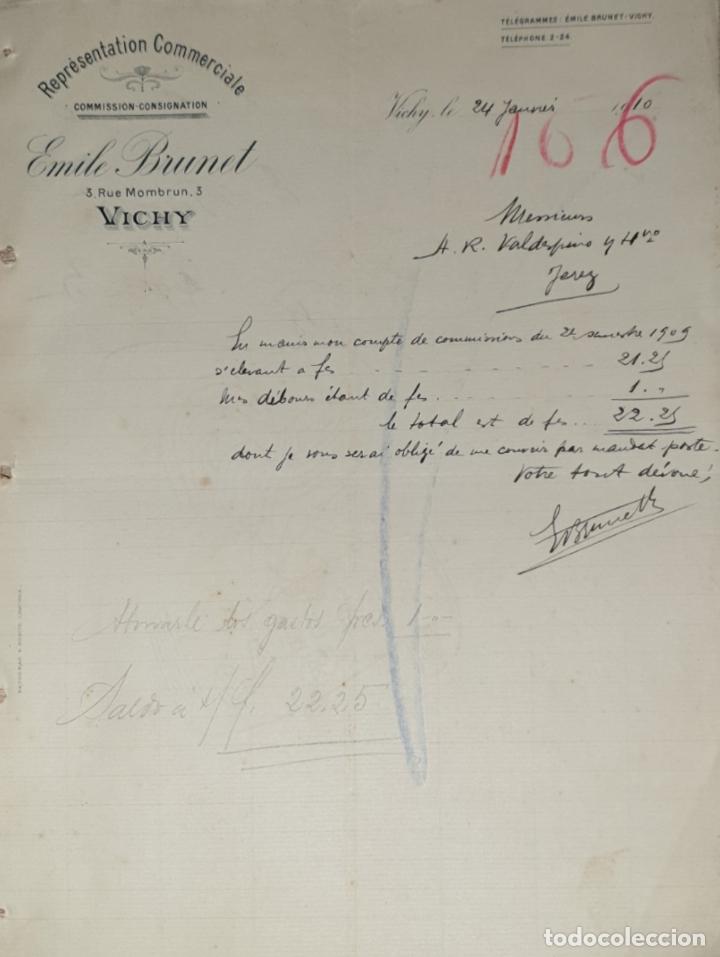 TÉLÉGRAMMES: ÉMILE BRUNET-VICHY.
TÉLÉPHONE 2-24.
Représentation Commerciale
COMMISSION-CONSIGNATION
Emile Brunet
3, Rue Mombrun, 3
VICHY
Vichy, le 24 Janvier 1910
156
Messieurs
A. R. Valdespino y Hno
Jerez
mon compte de commissions du 2e semestre 1909
s'élevant a fcs 21.25
Mes débours étant de fcs. 1."
le total est de fcs... 22.25
dont je vous serai obligé de me couvrir par mandat poste.
Votre tout dévoué,
EBrunet
Abonarle los gastos fcs 1--
Saldo a f. 22.25
todocoleccion